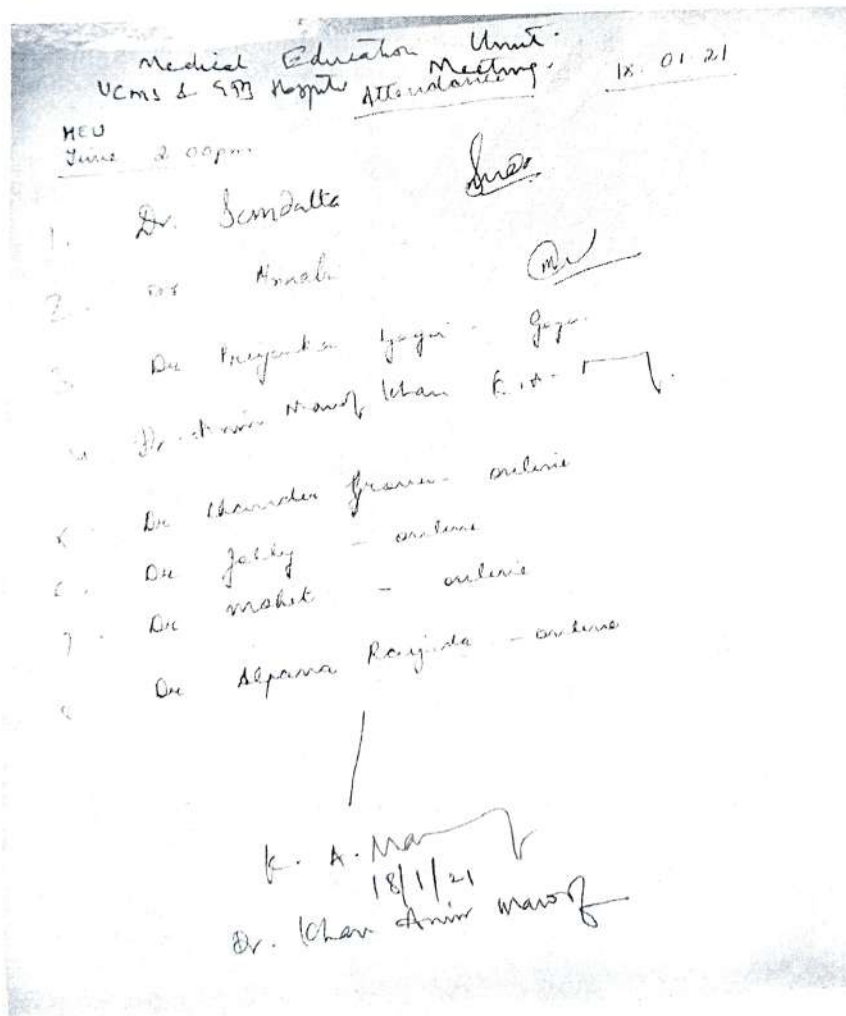 Medical Education Unit.
UCMS & GTB Hospital Meeting.
Attendance 18.01.21
MEU
Time 2.00pm.
1. Dr. Somdatta
2. Dr
3. Dr Priyanka Gogoi - Gogoi
4. Dr. Amir Maroof Khan K.A.
5. Dr Chander Grover - online
6. Dr Jolly - online
7. Dr Mohit - online
8 Dr Alpana Raizada - online
K. A. Mar
18/1/21
Dr. Khan Amir Maroof